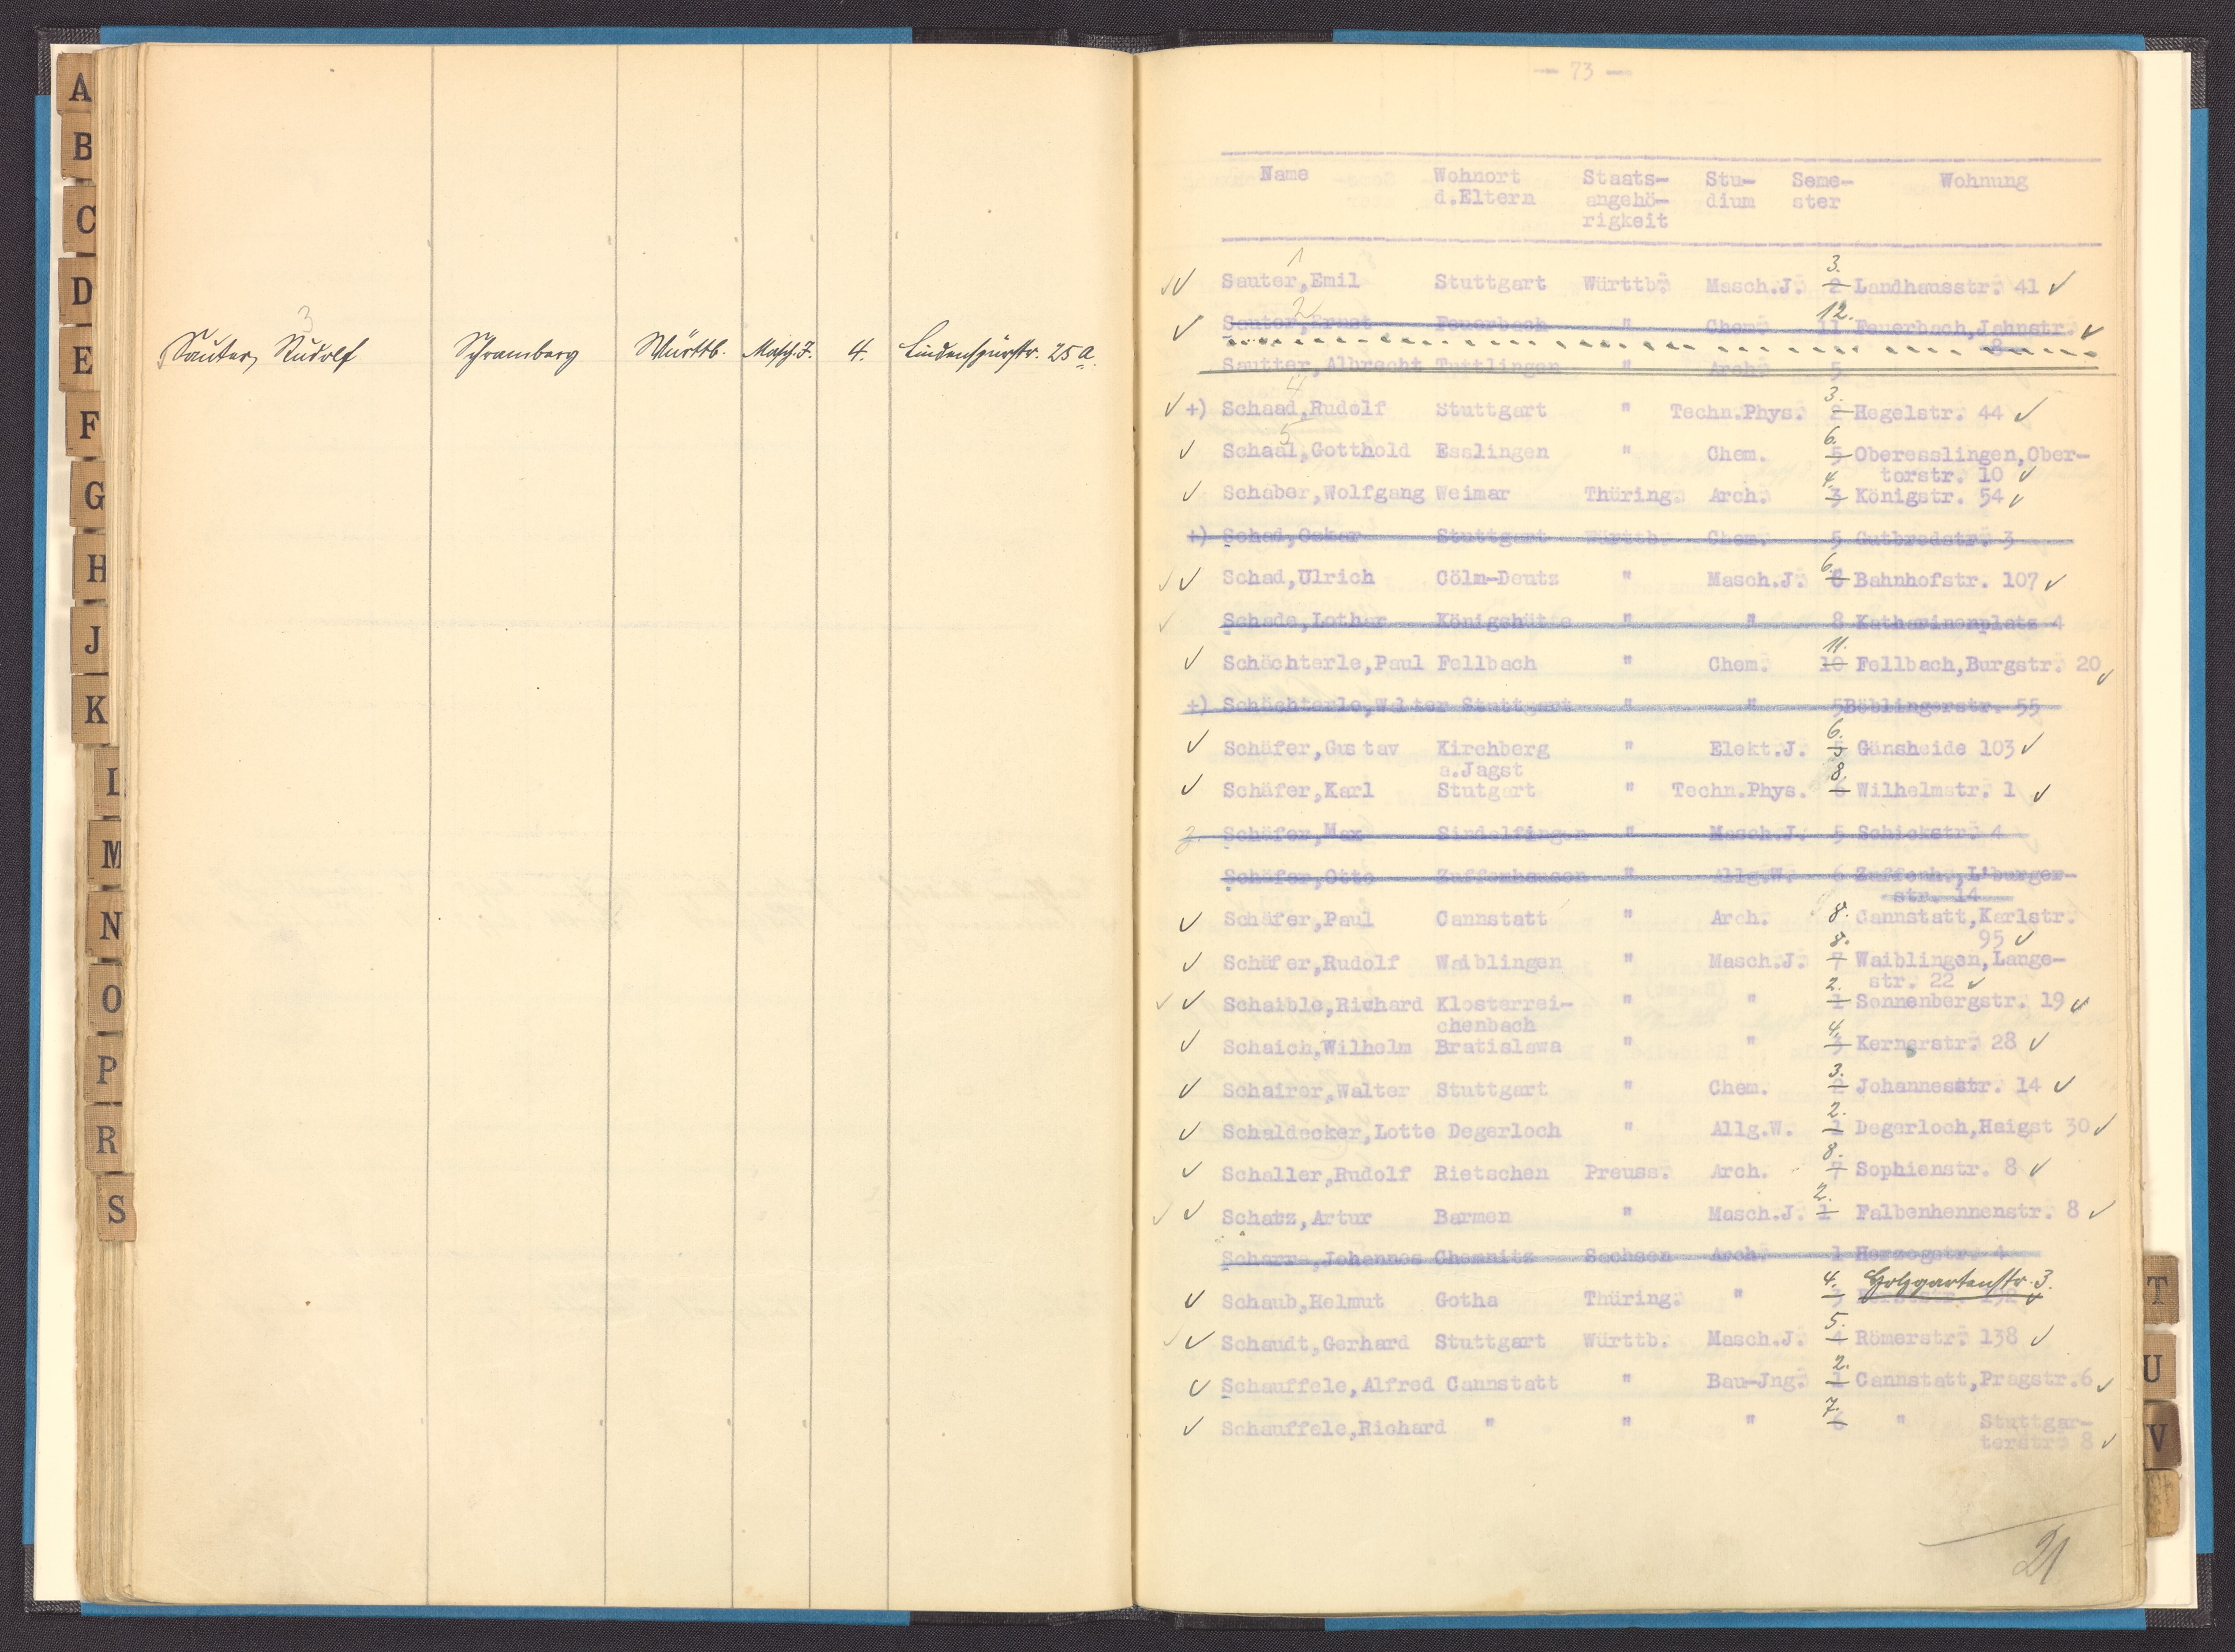 A
B
C
D
E
F
G
H
J
K
L
M
N
O
P
R
S
3
Sauter, Rudolf Schramberg Württb. Masch.J. 4. Lindenspürstr. 25 a.
— 73 —
Name Wohnort Staats- Stu- Seme- Wohnung
d.Eltern angehö- dium ster
rigkeit
1 3.
Sauter,Emil Stuttgart Württb. Masch.J. 2 Landhausstr. 41
2 12.
Sauter,Ernst Feuerbach " Chem. 11 Feuerbach,Jahnstr.
8
Sautter,Albrecht Tuttlingen " Arch. 5
4 3.
+) Schaad,Rudolf Stuttgart " Techn.Phys. 2 Hegelstr. 44
5 6.
Schaal,Gotthold Esslingen " Chem. 5 Oberesslingen,Ober-
4. torstr. 10
Schaber,Wolfgang Weimar Thüring. Arch. 3 Königstr. 54
+) Schad,Oskar Stuttgart Württb. Chem. 5 Gutbrodstr. 3
6.
Schad,Ulrich Cölm-Deutz " Masch.J. Bahnhofstr. 107
Schade,Lothar Königshütte " " 8 Katharinenplatz 4
11.
Schächterle,Paul Fellbach " Chem. 10 Fellbach,Burgstr. 20
+) Schächterle,Walter Stuttgart " " 5Böblingerstr. 55
6.
Schäfer,Gustav Kirchberg " Elekt.J. 5 Gänsheide 103
a.Jagst 8.
Schäfer,Karl Stutgart " Techn.Phys. 6 Wilhelmstr. 1
Schäfer,Max Sindelfingen " Masch.J. 5 Schickstr. 4
Schäfer,Otto Zuffenhausen " Allg.W. 6 Zuffenh.,L'burger-
str. 14
Schäfer,Paul Cannstatt " Arch. 8. Cannstatt,Karlstr.
8. 95
Schäfer,Rudolf Waiblingen " Masch.J. 7 Waiblingen,Lange-
2. str. 22
Schaible,Rivhard Klosterrei- " " 1 Sonnenbergstr. 19
chenbach 4.
Schaich,Wilhelm Bratislawa " " 3 Kernerstr. 28
3.
Schairer,Walter Stuttgart " Chem. 2 Johannesstr. 14
2.
Schaldecker,Lotte Degerloch " Allg.W. 1 Degerloch,Haigst 30
8.
Schaller,Rudolf Rietschen Preuss. Arch. 7 Sophienstr. 8
2.
Schatz,Artur Barmen " Masch.J. 1 Falbenhennenstr. 8
Scharre,Johannes Chemnitz Sachsen Arch. 1 Herzogstr. 4
4. Holzgartenstr. 3.
Schaub,Helmut Gotha Thüring. " 3
5.
Schaudt,Gerhard Stuttgart Württb. Masch.J. 4 Römerstr. 138
2.
Schauffele,Alfred Cannstatt " Bau-Jng. 1 Cannstatt,Pragstr.6
7.
Schauffele,Richard " " " 6 " Stuttgar-
terstr. 8
21
T
U
V